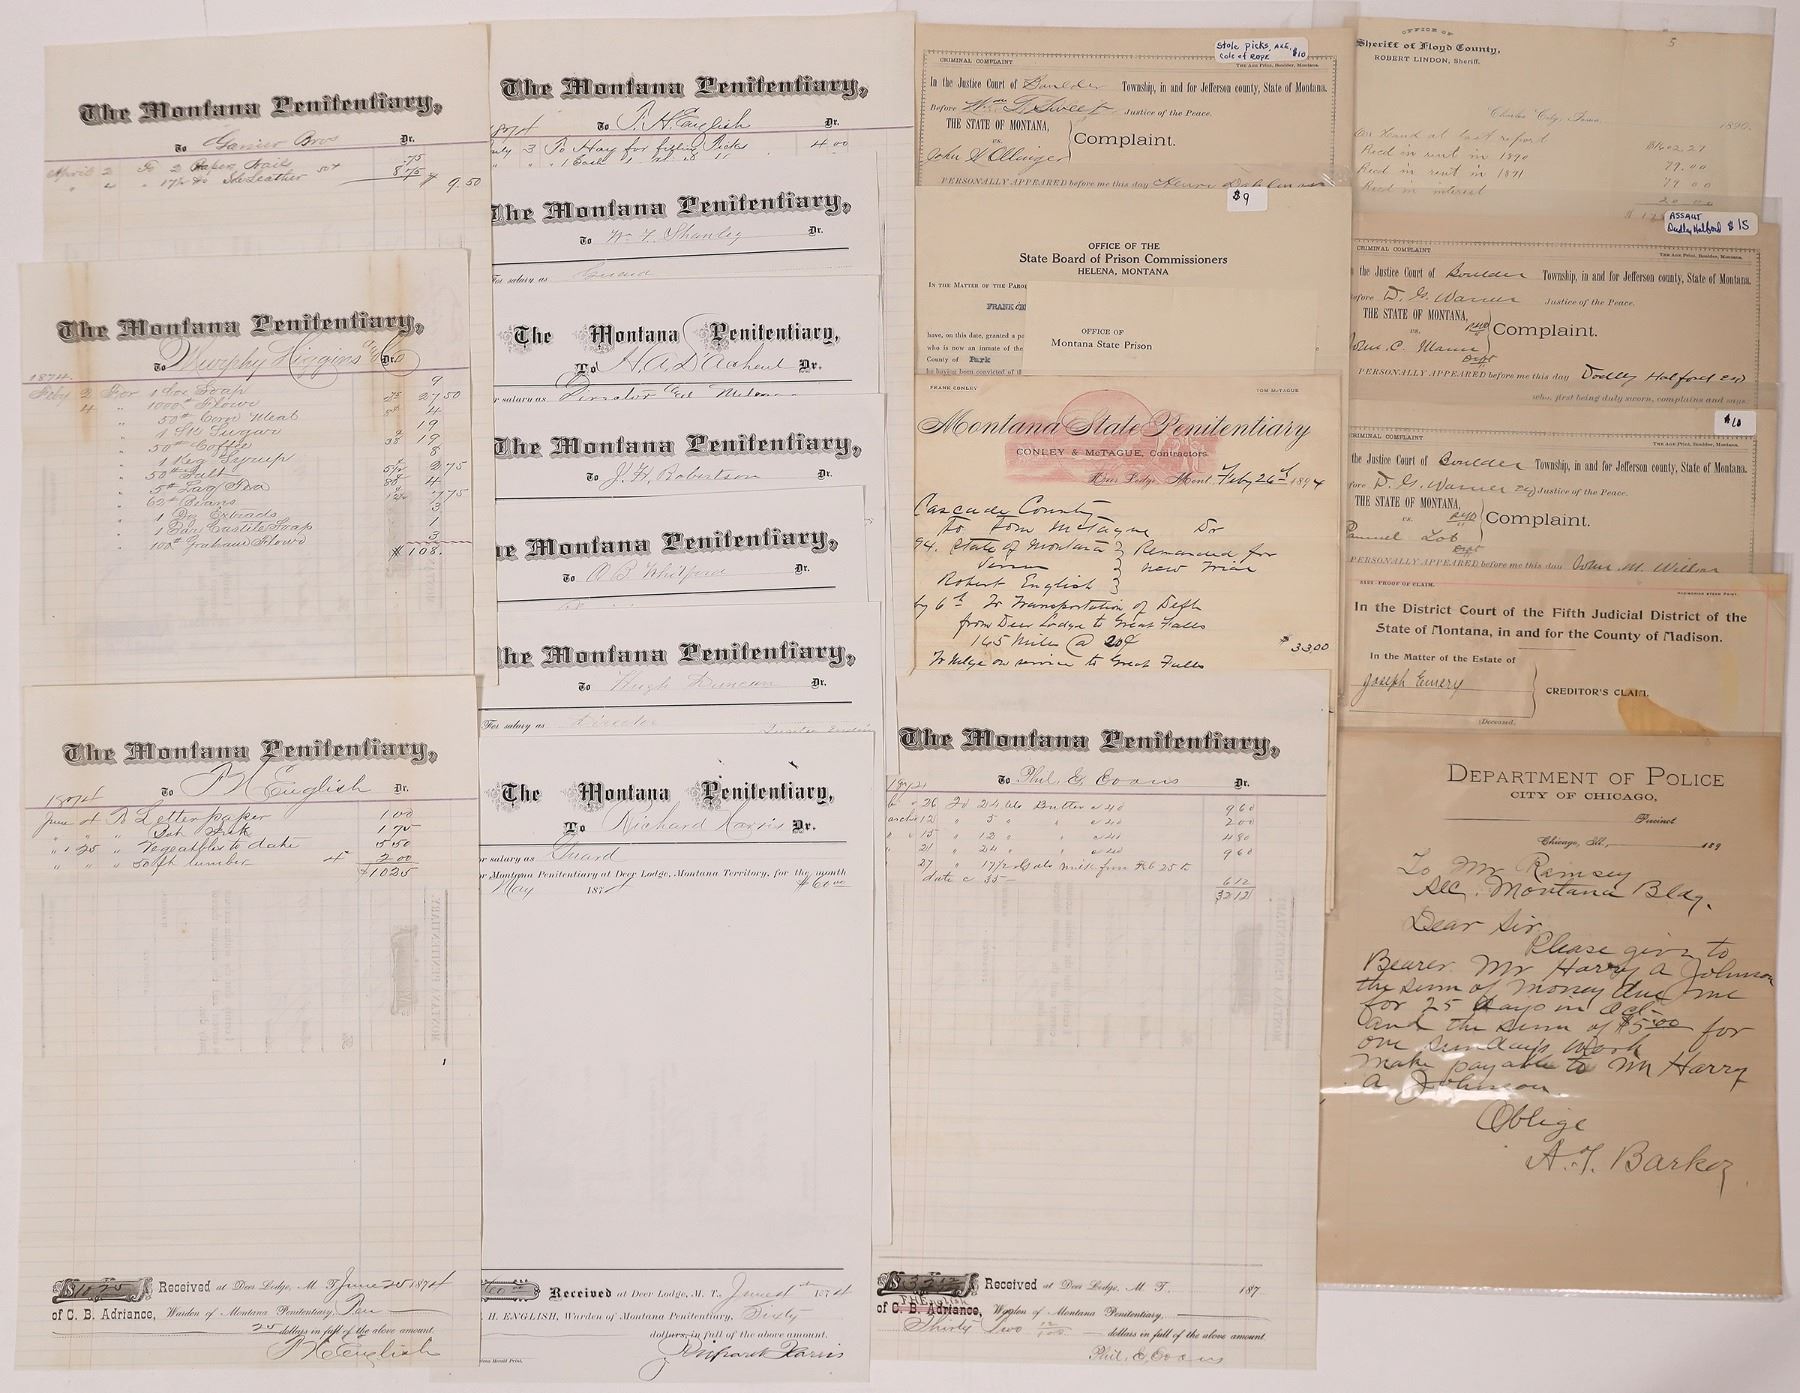 The Montana Penitentiary,
To Ganier Bros Dr.
April 2 To 2 Paper Nails .75
" 4 " 17 1/2 lb Sole Leather 50¢ 8.75 $ 9.50
The Montana Penitentiary,
To Murphy Higgins & Co Dr.
1874.
Feby 2 For 1 Box Soap 9
4 " 1000# Flour 27.50
" 50# Corn Meal 4
50# Coffee 19
" 1 Keg Syrup 8
" 50# Salt 2.75
" 5# Tea 4
" 62# Beans 7.75
" 1 Dz Extracts 3
" 1 Bar Castile Soap 1
" 100# Graham Flour 3
$ 108.
The Montana Penitentiary,
To F H English Dr.
1874
June 4 To Letter paper 1.00
" " " Ink 1.75
" 25 " Vegetables to date 5.50
" " " 50 ft lumber 4 2.00
$10.25
$10.25 Received at Deer Lodge, M. T. June 25 1874
of C. B. Adriance, Warden of Montana Penitentiary, Ten
25 dollars in full of the above amount.
F H English
The Montana Penitentiary,
1874 To F. H. English Dr.
July 3 To Hay for filling Ticks 4.00
The Montana Penitentiary,
To Wm F. Shanley Dr.
For salary as Guard
The Montana Penitentiary,
To H. A. D'Acheul Dr.
r salary as Director
The Montana Penitentiary,
To J. H. Robertson Dr.
he Montana Penitentiary,
To A B Whitford Dr.
The Montana Penitentiary,
To Hugh Duncan Dr.
For salary as Director
The Montana Penitentiary,
To Richard Harris Dr.
r salary as Guard
r Montana Penitentiary at Deer Lodge, Montana Territory, for the month
May 1874 $60.00
60.00 Received at Deer Lodge, M. T., June 4th 1874
H. ENGLISH, Warden of Montana Penitentiary, Sixty
dollars, in full of the above amount.
Richard Harris
Herald Print.
Stole picks, axe, $10
cole of rope
CRIMINAL COMPLAINT
The Age Print, Boulder, Montana.
In the Justice Court of Boulder Township, in and for Jefferson county, State of Montana.
Before Wm T. Sweet, Justice of the Peace.
THE STATE OF MONTANA,
vs. Complaint.
John H Ollinger
PERSONALLY APPEARED before me this day Henry
$9
OFFICE OF THE
State Board of Prison Commissioners
HELENA, MONTANA
IN THE MATTER OF THE PAROL
FRANK
have, on this date, granted a pa
who is now an inmate of the
County of Park
he having been convicted of th
OFFICE OF
Montana State Prison
FRANK CONLEY TOM McTAGUE
Montana State Penitentiary
CONLEY & McTAGUE, Contractors.
Deer Lodge, Mont. Feby 26th 1894
Cascade County
To Tom McTague Dr
94. State of Montana } Remanded for
Versus } new Trial
Robert English }
by 6th To Transportation of Deft
from Deer Lodge to Great Falls
165 Miles @ 20¢ $33.00
To Mlge on service to Great Falls
The Montana Penitentiary,
1872 To Phil. E. Evans Dr.
26 To 24 lbs Butter @ 40 9 60
arch 12 " 5 " " @ 40 2 00
" 15 " 12 " " @ 40 4 80
" 21 " 24 " " @ 40 9 60
27 " 17 1/2 Gals milk from Feb 25 to
date @ 35 — 6 12
32 12
$32 12 Received at Deer Lodge, M. T. 187
F H English
of C. B. Adriance, Warden of Montana Penitentiary,
Thirty Two 12/100 dollars in full of the above amount
Phil. E. Evans
OFFICE OF
Sheriff of Floyd County,
ROBERT LINDON, Sheriff.
5
Charles City, Iowa 1890.
On hand at last report $1602.27
Recd in rent in 1890 79.00
Recd in rent in 1891 79.00
Recd in interest 20.00
ASSAUT
Dudley Halford $15
CRIMINAL COMPLAINT
The Age Print, Boulder, Montana.
the Justice Court of Boulder Township, in and for Jefferson county, State of Montana.
efore D. G. Warner Justice of the Peace.
THE STATE OF MONTANA,
vs. Complaint.
John C. Mann
Deft
PERSONALLY APPEARED before me this day Dudley Halford Esq
who, first being duly sworn, complains and says:
$10
CRIMINAL COMPLAINT
The Age Print, Boulder, Montana.
the Justice Court of Boulder Township, in and for Jefferson county, State of Montana.
fore D. G. Warner Esq Justice of the Peace.
THE STATE OF MONTANA,
vs. Complaint.
Samuel Lot
Deft
PERSONALLY APPEARED before me this day John M. Wilson
PROOF OF CLAIM.
In the District Court of the Fifth Judicial District of the
State of Montana, in and for the County of Madison.
In the Matter of the Estate of
Joseph Emery CREDITOR'S CLAIM.
(Deceased.
DEPARTMENT OF POLICE
CITY OF CHICAGO,
Precinct
Chicago, Ill., 189
To Mr Ramsey
Sec. Montana Bldg.
Dear Sir.
Please give to
Bearer Mr Harry A Johnson
the sum of money due me
for 25 days in Oct
and the sum of $5.00 for
one sundays work
make payable to Mr Harry
A Johnson
Oblige
A. F. Barker